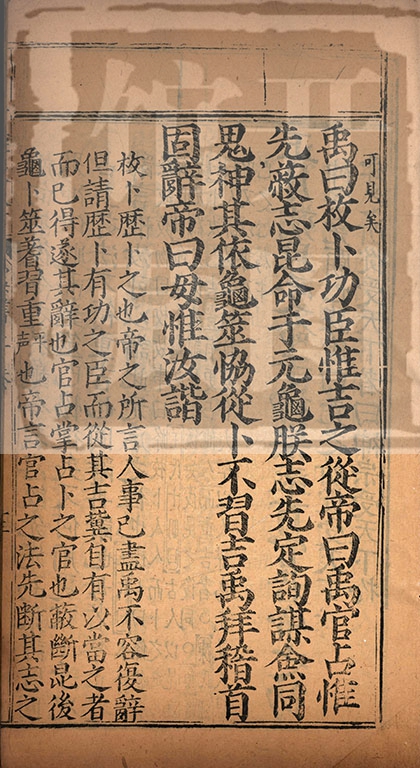 可見矣
禹曰枚卜功臣惟吉之從帝曰禹官占惟
先蔽志昆命于元龜朕志先定詢謀僉同
鬼神其依龜筮協從卜不習吉禹拜稽首
固辭帝曰毋惟汝諧
枚卜歷卜之也帝之所言人事已盡禹不容復辭
但請歷卜有功之臣而從其吉冀自有以當之者
而已得遂其辭也官占掌占卜之官也蔽斷昆後
龜卜筮蓍習重也帝言官占之法先斷其志之